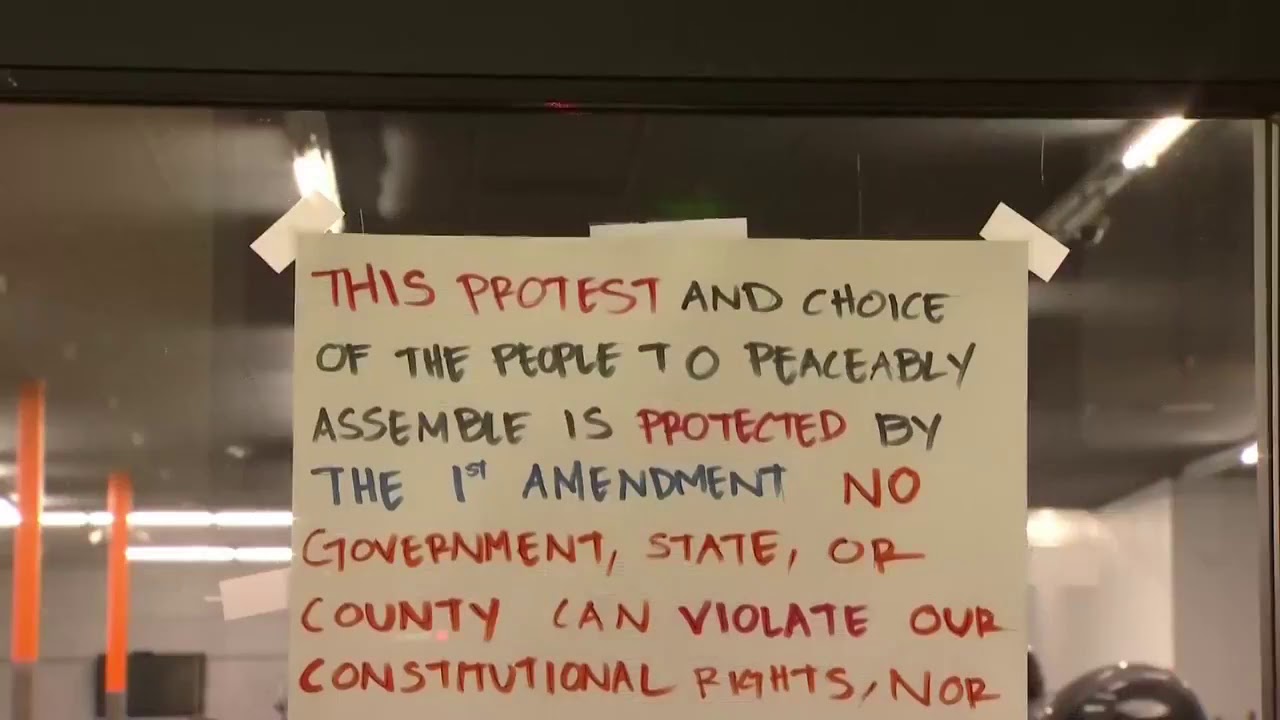 THIS PROTEST AND CHOICE
OF THE PEOPLE TO PEACEABLY
ASSEMBLE IS PROTECTED BY
THE 1st AMENDMENT NO
GOVERNMENT, STATE, OR
COUNTY CAN VIOLATE OUR
CONSTITUTIONAL RIGHTS, NOR